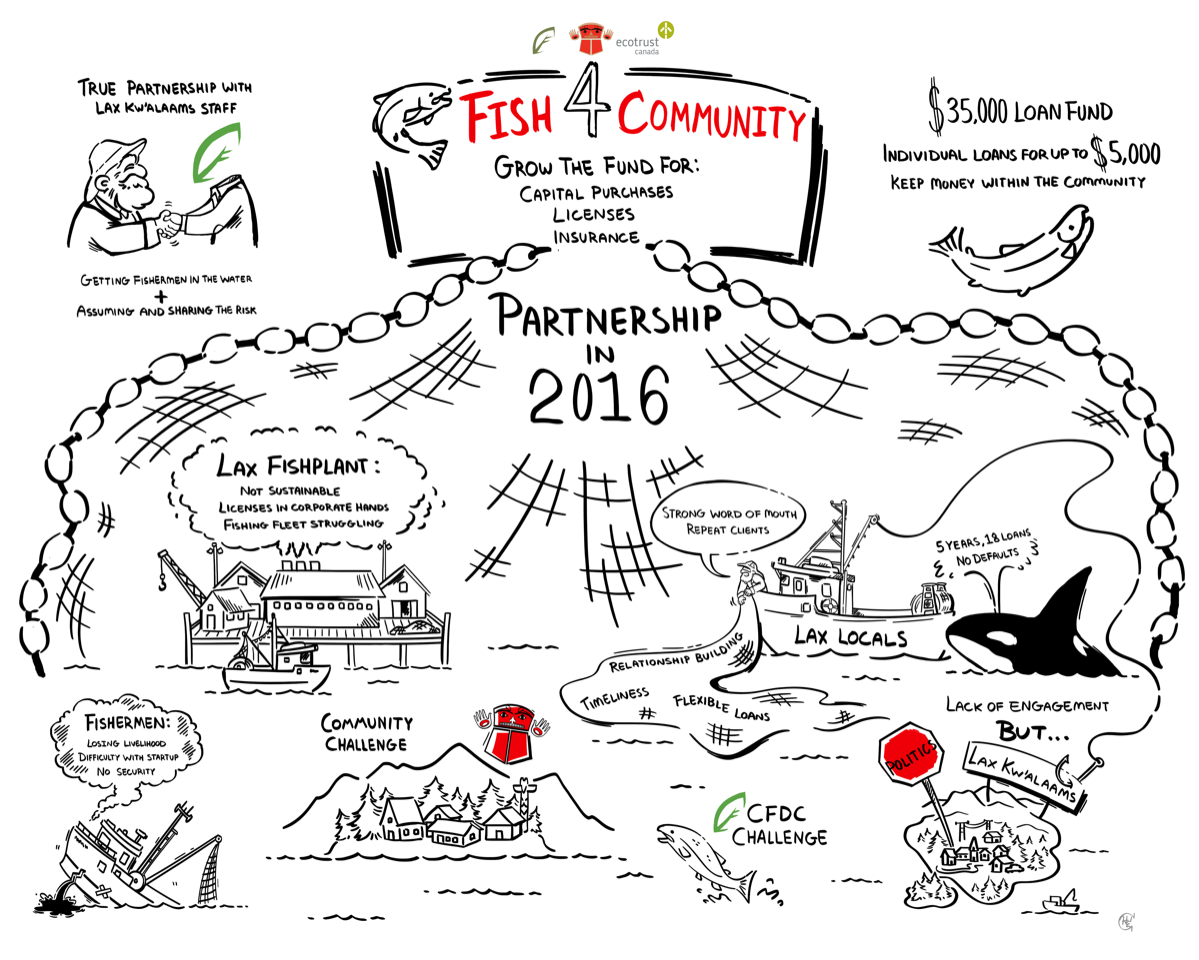 ecotrust
canada
TRUE PARTNERSHIP WITH
LAX KW'ALAAMS STAFF
GETTING FISHERMEN IN THE WATER
+
ASSUMING AND SHARING THE RISK
FISH 4 COMMUNITY
GROW THE FUND FOR:
CAPITAL PURCHASES
LICENSES
INSURANCE
$35,000 LOAN FUND
INDIVIDUAL LOANS FOR UP TO $5,000
KEEP MONEY WITHIN THE COMMUNITY
PARTNERSHIP
IN
2016
LAX FISHPLANT:
NOT SUSTAINABLE
LICENSES IN CORPORATE HANDS
FISHING FLEET STRUGGLING
STRONG WORD OF MOUTH
REPEAT CLIENTS
5 YEARS, 18 LOANS
NO DEFAULTS
LAX LOCALS
RELATIONSHIP BUILDING
TIMELINESS
FLEXIBLE LOANS
FISHERMEN:
LOSING LIVELIHOOD
DIFFICULTY WITH STARTUP
NO SECURITY
COMMUNITY
CHALLENGE
CFDC
CHALLENGE
LACK OF ENGAGEMENT
BUT...
POLITICS
LAX KW'ALAAMS